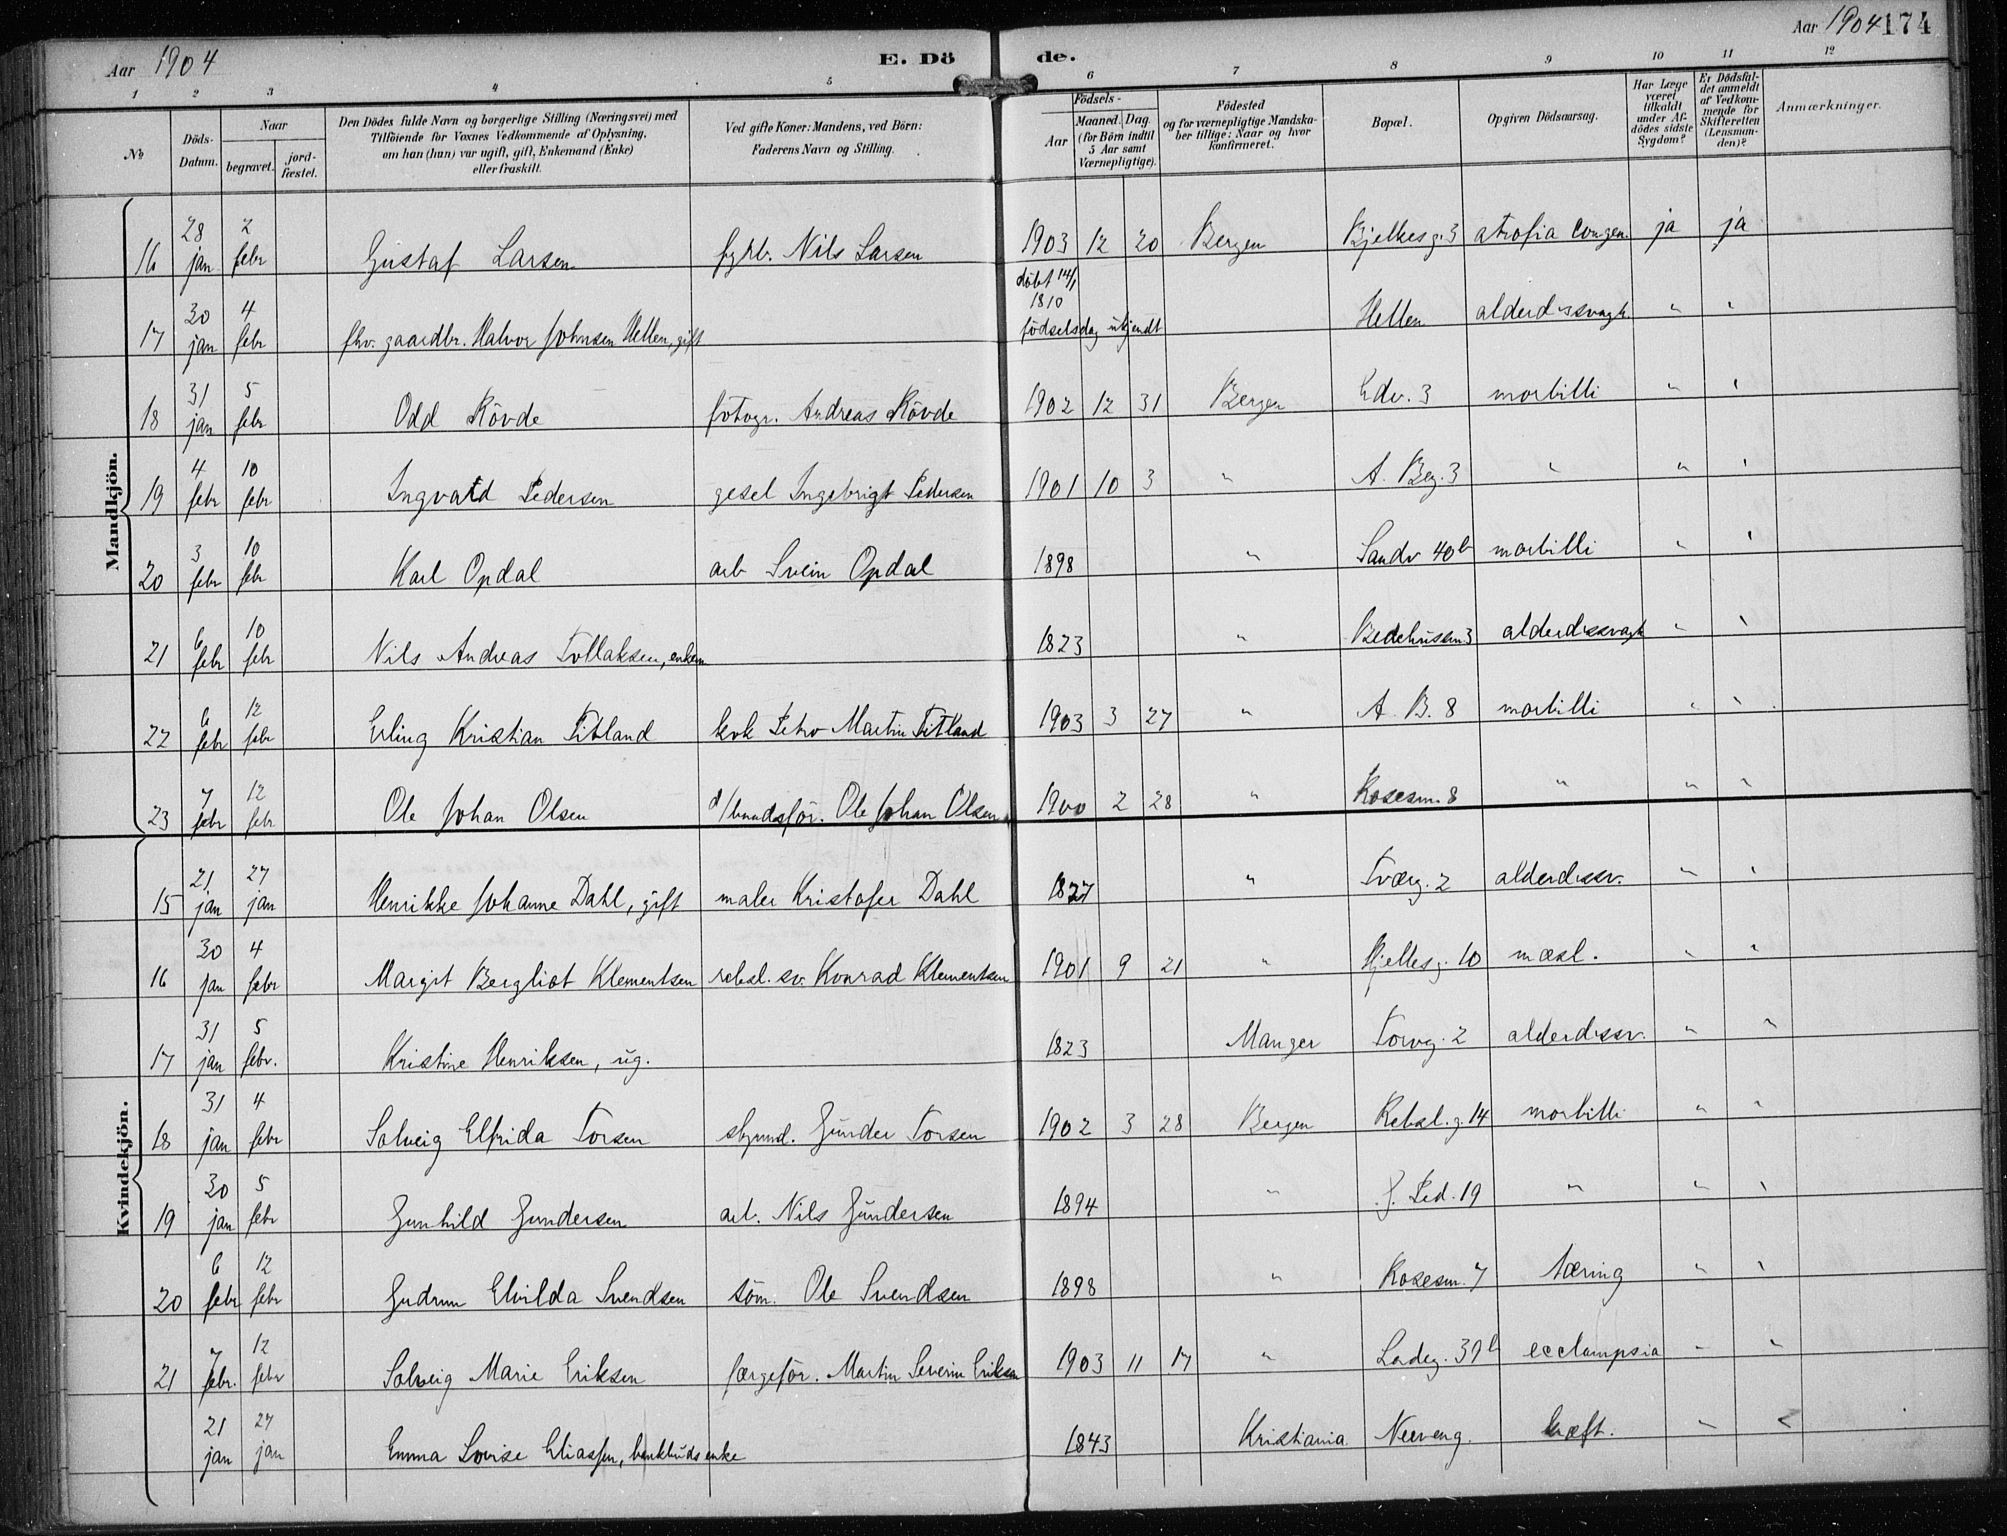 Aar 1904
E. Dö de.
Aar 1904 174
1 2 3 4 5 6 7 8 9 10 11 12
No
Döds-Datum.
Naar
begravet.
jord-fæstet.
Den Dödes fulde Navn og borgerlige Stilling (Næringsvei) med
Tilföiende for Voxnes Vedkommende af Oplysning,
om han (hun) var ugift, gift, Enkemand (Enke)
eller fraskilt.
Ved gifte Koner: Mandens, ved Börn:
Faderens Navn og Stilling.
Födsels-
Aar
Maaned. Dag.
(for Börn indtil
5 Aar samt
Værnepligtige).
Födested
og for værnepligtige Mandska-
ber tillige: Naar og hvor
konfirmeret.
Bopæl.
Opgiven Dödsaarsag.
Har Læge
været
tilkaldt
under Af-
dödes sidste
Sygdom?
Er Dödsfal-
det anmeldt
af Vedkom-
mende for
Skifteretten
(Lensman-
den)?
Anmærkninger.
Mandkjön.
16 28 jan 2 febr Gustaf Larsen fyrb. Nils Larsen 1903 12 20 Bergen Bjelkesg. 3 atrofia congen. ja ja
döbt 14/1
17 30 jan 4 febr fhv. gaardbr. Halvor Johnsen Hellen, gift 1810 födselsdag ukjendt Hellen alderdssvagh. " "
18 31 jan 5 febr Odd Rövde fotogr. Andreas Rövde 1902 12 31 Bergen Edv. 3 morbilli " "
19 4 febr 10 febr Ingvald Pedersen gesel Ingebrigt Pedersen 1901 10 3 " A. Beg. 3 " " "
20 3 febr 10 febr Karl Opdal arb Svein Opdal 1898 " Sandv 40b morbilli " "
21 6 febr 10 febr Nils Andreas Tollaksen, enkem 1823 " Bedehussm 3 alderdssvagh " "
22 6 febr 12 febr Erling Kristian Titland kok Petro Martin Titland 1903 3 27 " A. B. 8 morbilli " "
23 7 febr 12 febr Ole Johan Olsen Ole Johan Olsen 1900 2 28 " Rosesm. 8 " " "
Kvindekjön.
15 21 jan 27 jan Henrikke Johanne Dahl, gift maler Kristofer Dahl 1827 " Tværg. 2 alderdssv. " "
16 30 jan 4 febr Margit Bergliot Klementsen rebsl. sv. Konrad Klementsen 1901 9 21 " Hjellesg. 10 mæsl. " "
17 31 jan 5 febr. Kristine Henriksen, ug. 1823 Manger Torvg. 2 alderdssv. " "
18 31 jan 4 febr Solveig Elfrida Torsen Gunder Torsen 1902 3 28 Bergen Rebsl. g. 14 morbilli " "
19 30 jan 5 febr Gunhild Gundersen arb. Nils Gundersen 1894 " J. Led. 19 " " "
20 6 febr 12 febr Gudrun Elvilda Svendsen söm. Ole Svendsen 1898 " Rosesm. 7 tæring " "
21 7 febr. 12 febr Solveig Marie Eriksen færgeför. Martin Severin Eriksen 1903 11 17 " Ladeg. 39b ecclampsia " "
21 jan 27 jan Emma Lovise Eliassen, bankbuds enke 1843 Kristiania Nerveng. kræft. " "